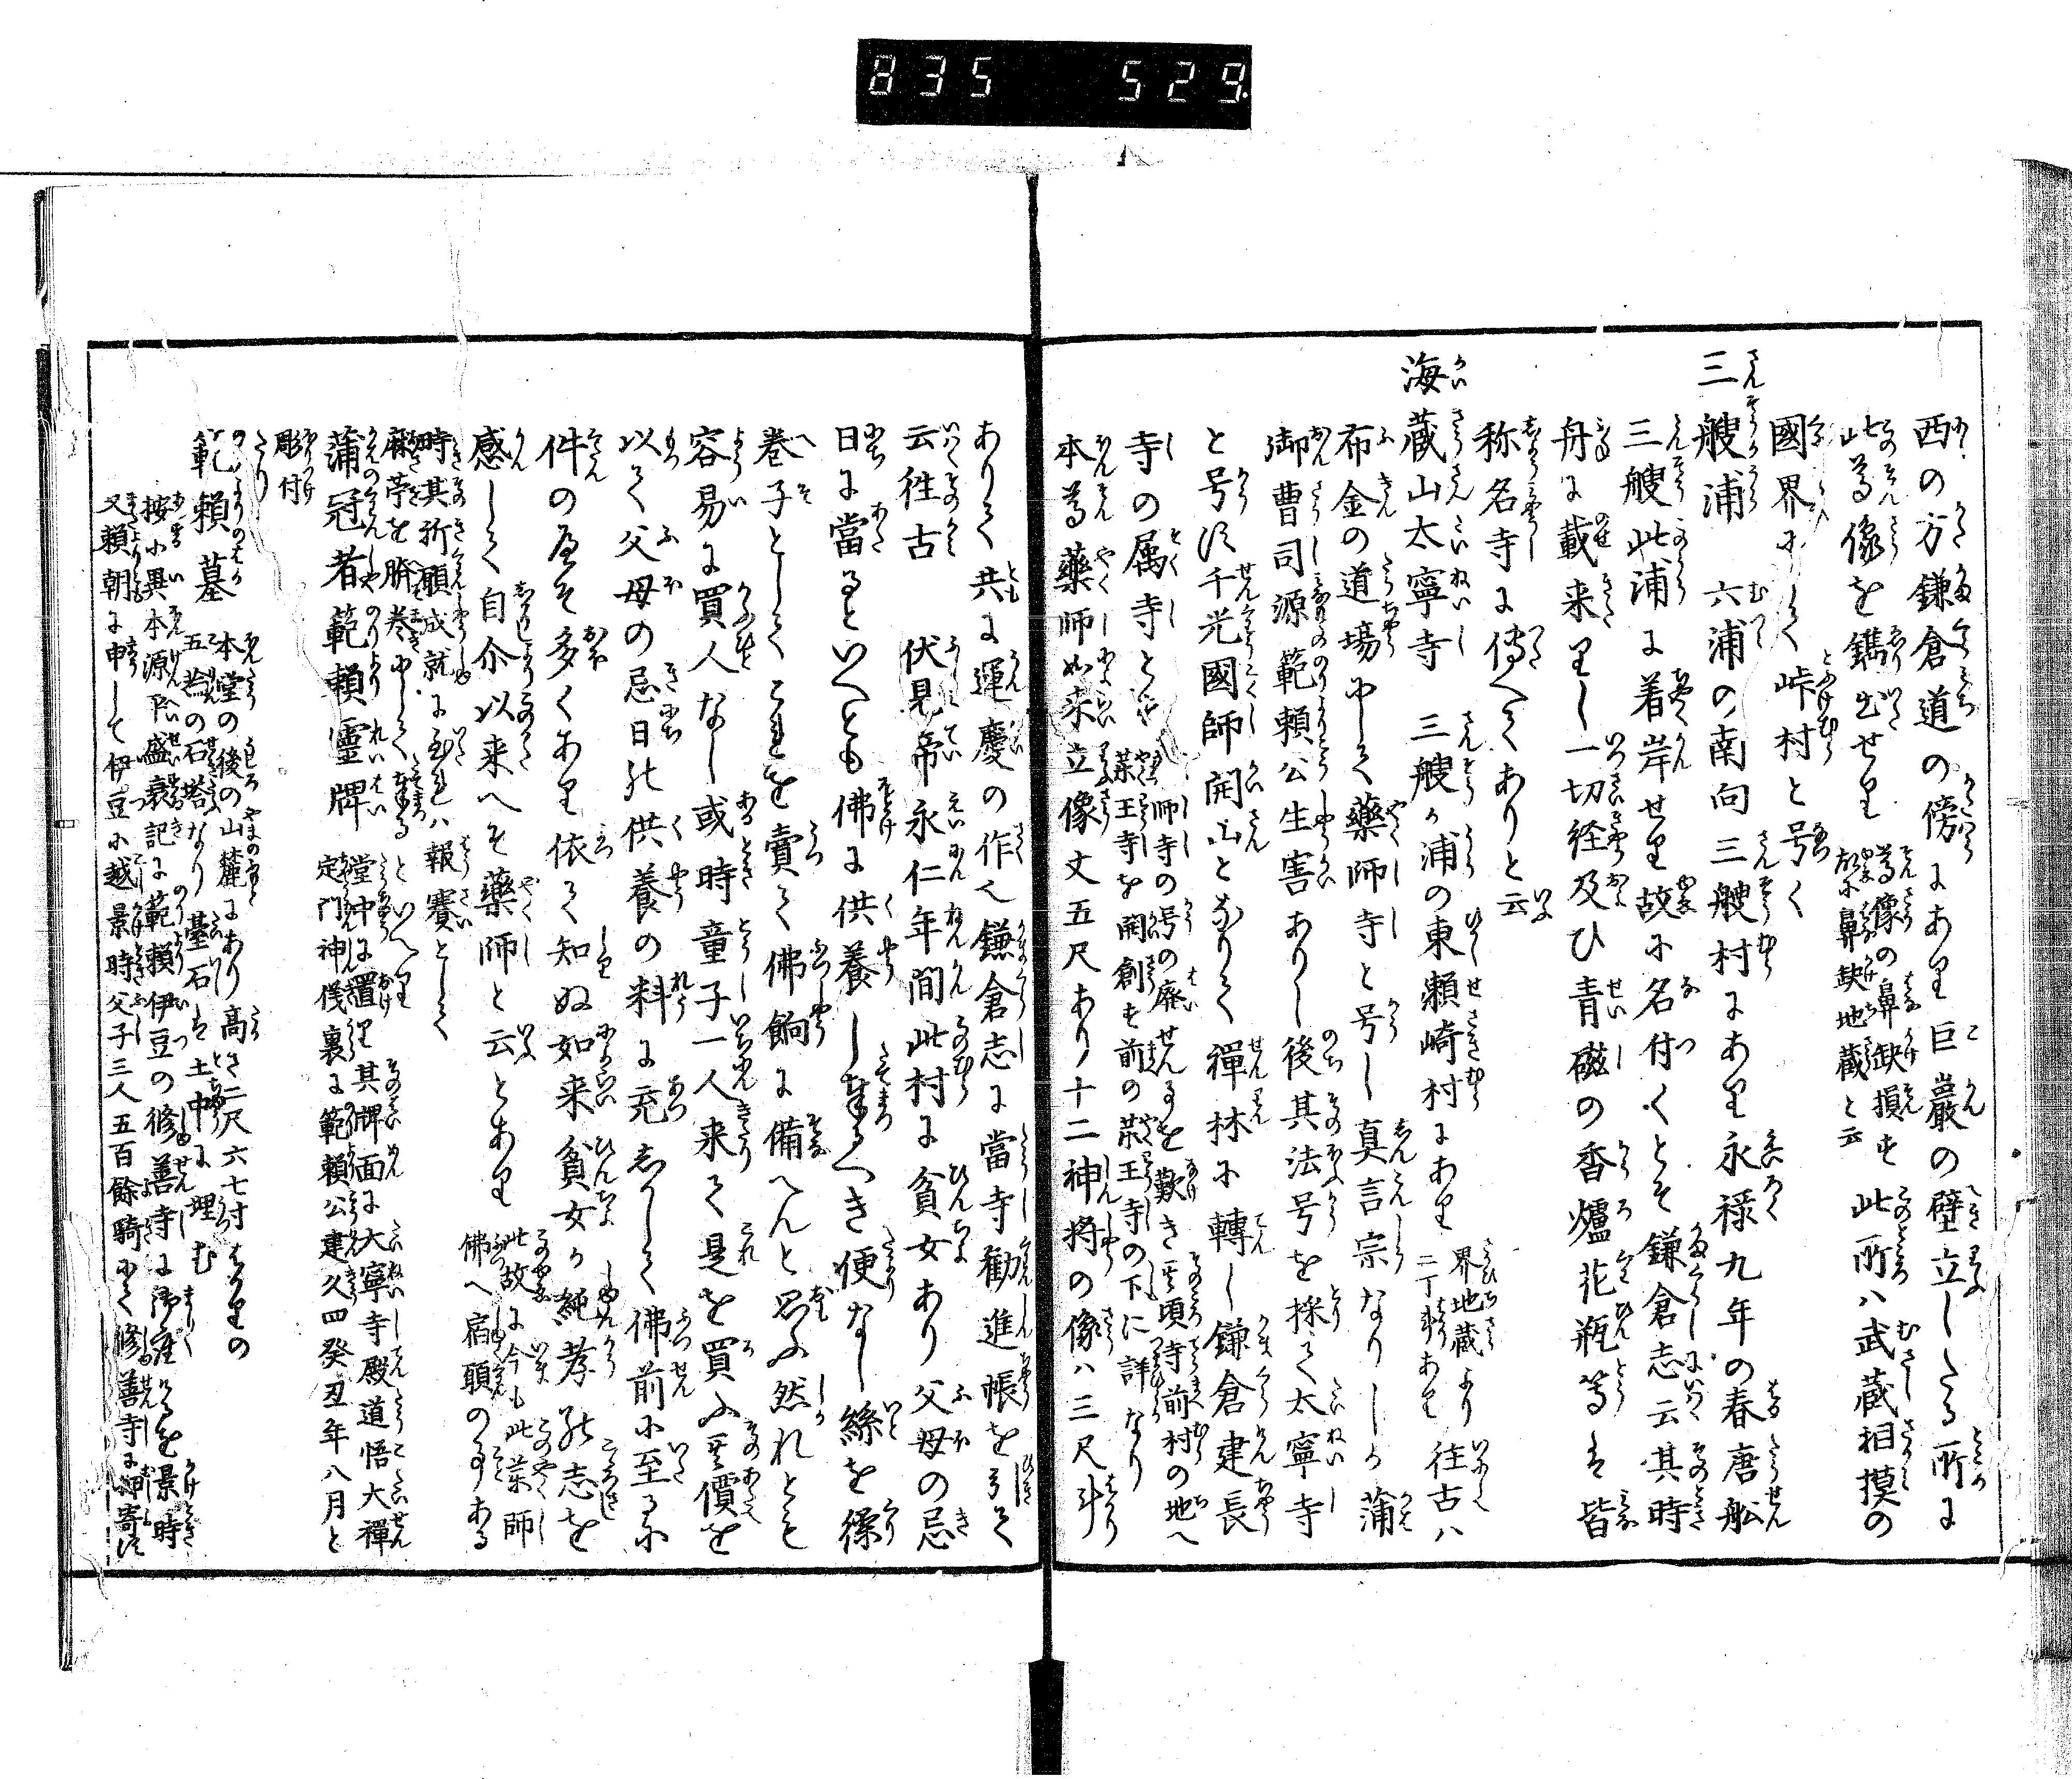 835 529
西の方鎌倉道の傍にあり巨巌の壁立したる所に
此尊像を鐫出せり 尊像の鼻缺損す
故に鼻缺地蔵と云 此所ハ武蔵相摸の
國界にして峠村と号く
三艘浦 六浦の南向三艘村にあり永禄九年の春唐舩
三艘此浦に着岸せり故に名付くとそ鎌倉志云其時
舟に載来りし一切経及ひ青磁の香爐花瓶等は皆
称名寺に傳へてありと云
海蔵山太寧寺 三艘か浦の東瀬崎村にあり 界地蔵より
二丁斗あり 往古ハ
布金の道場にして藥師寺と号し真言宗なりしか蒲
御曹司源範頼公生害ありし後其法号を採て太寧寺
と号す千光國師開山となりて禅林に轉し鎌倉建長
寺の属寺とす 薬師寺の号の廃せんことを歎き其頃寺前村の地へ
薬王寺を開創す前の薬王寺の下に詳なり
本尊藥師如来立像丈五尺あり十二神将の像ハ三尺斗
ありて共に運慶の作也鎌倉志に當寺勧進帳を引て
云往古 伏見帝永仁年間此村に貧女あり父母の忌
日に當るといへとも佛に供養し奉るへき便なし絲を繰
巻子としてこれを賣て佛餉に備へんと思ふ然れとも
容易に買人なし或時童子一人来て是を買ふ其價を
以て父母の忌日の供養の料に充しかして佛前に至るに
件のへそ多くあり依て知ぬ如来貧女か純孝の志を
感して自尓以来へそ藥師と云とあり 此故に今も此薬師
佛へ宿願の事ある
時其祈願成就に至れハ報賽として
麻苧を臍巻にして奉るといへり
蒲冠者範頼靈牌 堂中に置り其牌面に大寧寺殿道悟大禅
定門神儀裏に範頼公建久四癸丑年八月と
彫付
たり
範頼墓 本堂の後の山麓にあり高さ二尺六七寸はかりの
五輪の石塔なり臺石は土中に埋む
按に異本源平盛衰記に範頼伊豆の修善寺に御座けるを景時
又頼朝に申して伊豆に越景時父子三人五百餘騎にて修善寺に押寄す